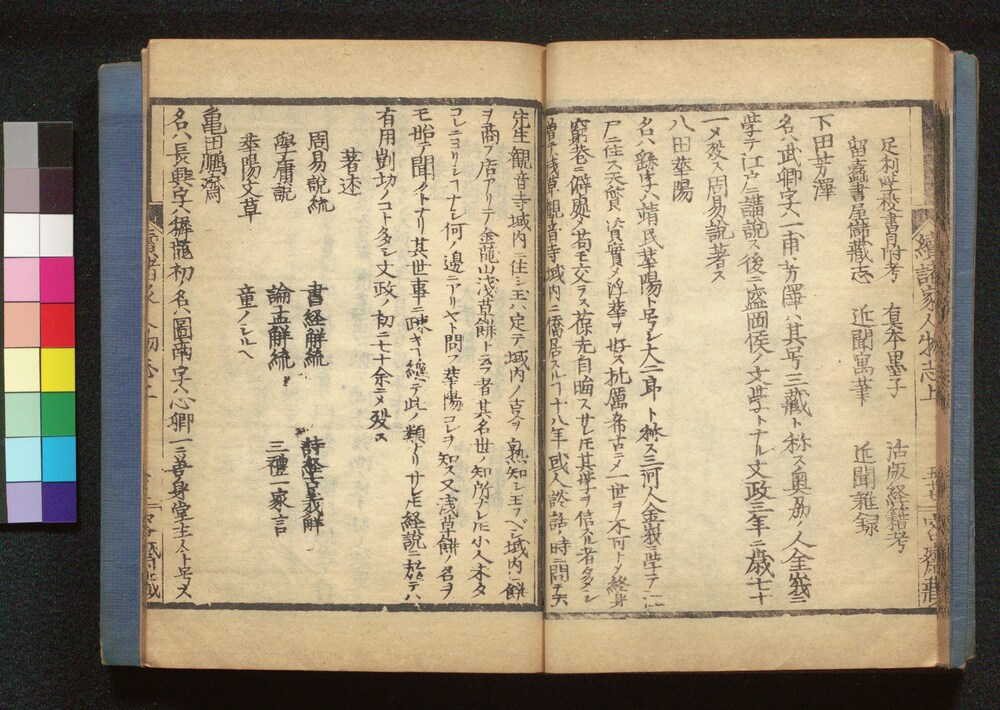 足利学校書目附考　真本墨子　活版経籍考
留蠧書屋儲蔵志　近聞寓筆　近聞雑録
下田芳澤
名ハ武卿字ハ一甫芳澤ハ其号三蔵ト称ス奥州ノ人金峩ニ
学テ江戸ニ講説ス後ニ盛岡侯ノ文学トナル文政三年ニ歳七十
一〆殁ス周易説著ス
八田華陽
名ハ繇字ハ靖民華陽ト号シ大二郎ト称ス三河人金峩ニ学テ江
戸ニ住ス天質資實〆浮華ヲ好ス抗厲希古〆一世ヲ不可ト〆終身
窮巷ニ僻處ス苟モ交ラス葆光自晦スサレ𪜈其学ヲ信スル者多シ
曽テ浅草観音寺域内ニ僑居スルヿ十八年或人談話ノ時ニ問テ云
先生観音寺域内ニ住シ玉ハ定テ域内ノ支ヲ熟知シ玉フベシ域内ニ餅
ヲ商フ店アリテ金龍山浅草餅ト云フ者其名世ノ知所ナレ𪜈小人未タ
コレニヨリシヿナシ何ノ邊ニアリヤト問フ華陽コレヲ知ス又浅草餅ノ名ヲ
モ始テ聞クトナリ其世事ニ疎キヿ總テ此ノ類ナリサレ𪜈経説ニ於テハ
有用剴切ノコト多シ文政ノ初ニ七十余ニ〆殁ス
著述
周易説統　書経解統　詩経古義解
学庸説　論孟解統　三禮一家言
華陽文草　童ノシルヘ
亀田鵬齋
名ハ長興字ハ穉龍初ノ名ハ圖南字ハ心卿一ニ善身堂主人ト号ス
續諸家人物志上